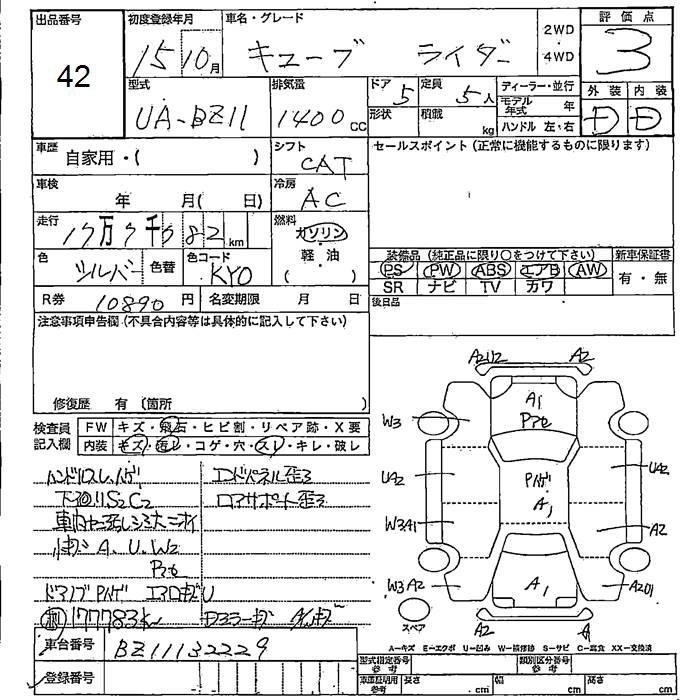 出品番号
42
初度登録年月
15 10月
車名・グレード
キューブ ライダー
2WD
・
4WD
評価点
3
型式
UA-BZ11
排気量
1400 CC
ドア
5
定員
5人
形状
積載
kg
ディーラー・並行
モデル年式 年
ハンドル 左・右
外装
D
内装
D
車歴
自家用・( )
シフト
CAT
セールスポイント (正常に機能するものに限ります)
車検
年 月( 日)
冷房
AC
走行
17万7千782km
燃料
ガソリン
・
軽油
( )
色
シルバー
色替
色コード
KY0
装備品 (純正品に限り○をつけて下さい)
新車保証書
PS PW ABS エアB AW
SR ナビ TV カワ
有・無
R券 10890円
名変期限 月 日
後日品
注意事項申告欄 (不具合内容等は具体的に記入して下さい)
修復歴 有 (箇所 )
検査員記入欄
FW キズ・飛石・ヒビ割・リペア跡・X要
内装 キズ・汚レ・コゲ・穴・スレ・キレ・破レ
ハンドルスレハゲ
エンドパネル歪ミ
下廻リS2C2
ロアサポート歪ミ
A.U.W2
ドアノブPハゲ エアロキズU
177783km
車台番号
BZ11132229
登録番号
A2U2
A2
A1
W3
UA2
Pハゲ
A1
UA2
W3A1
A2
W3A2
A1
A2U1
スペア
A2
A
A—キズ E—エクボ U—凹み W—補修跡 S—サビ C—腐食 XX—交換済
型式指定番号
参考
類別区分番号
参考
車庫証明用
参考
長さ .cm
幅 cm
高さ cm